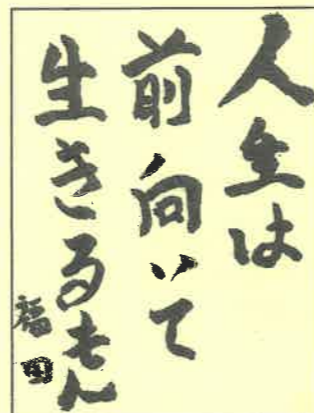 人生は
前向いて
生きるもん
福田